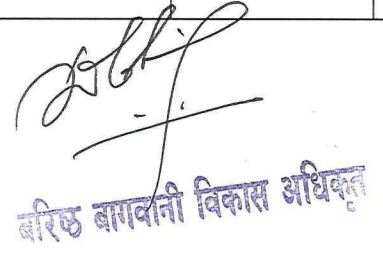 वरिष्ठ बागवानी विकास अधिकृत